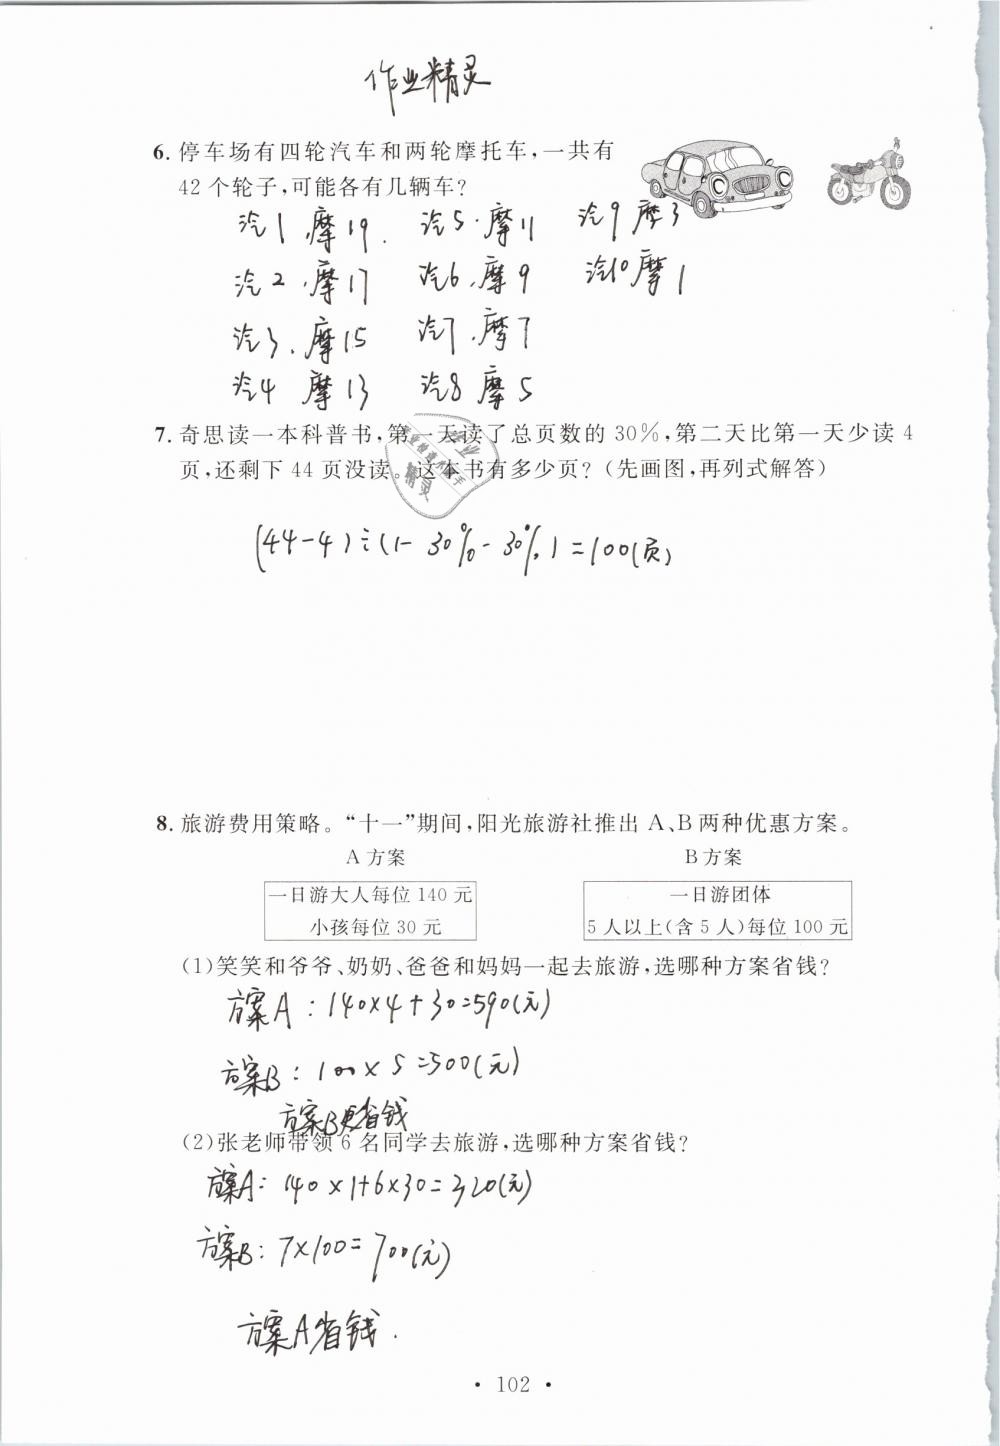 作业精灵
6. 停车场有四轮汽车和两轮摩托车,一共有
42个轮子,可能各有几辆车?
汽1.摩19. 汽5.摩11 汽9摩3
汽2.摩17 汽6.摩9 汽10摩1
汽3.摩15 汽7.摩7
汽4 摩13 汽8摩5
7. 奇思读一本科普书,第一天读了总页数的30%,第二天比第一天少读4
页,还剩下44页没读。这本书有多少页?(先画图,再列式解答)
(44-4)÷(1-30%-30%)=100(页)
8. 旅游费用策略。“十一”期间,阳光旅游社推出A、B两种优惠方案。
A方案 B方案
一日游大人每位140元 一日游团体
小孩每位30元 5人以上(含5人)每位100元
(1)笑笑和爷爷、奶奶、爸爸和妈妈一起去旅游,选哪种方案省钱?
方案A:140×4+30=590(元)
方案B:100×5=500(元)
方案B更省钱
(2)张老师带领6名同学去旅游,选哪种方案省钱?
方案A:140×1+6×30=320(元)
方案B:7×100=700(元)
方案A省钱.
• 102 •